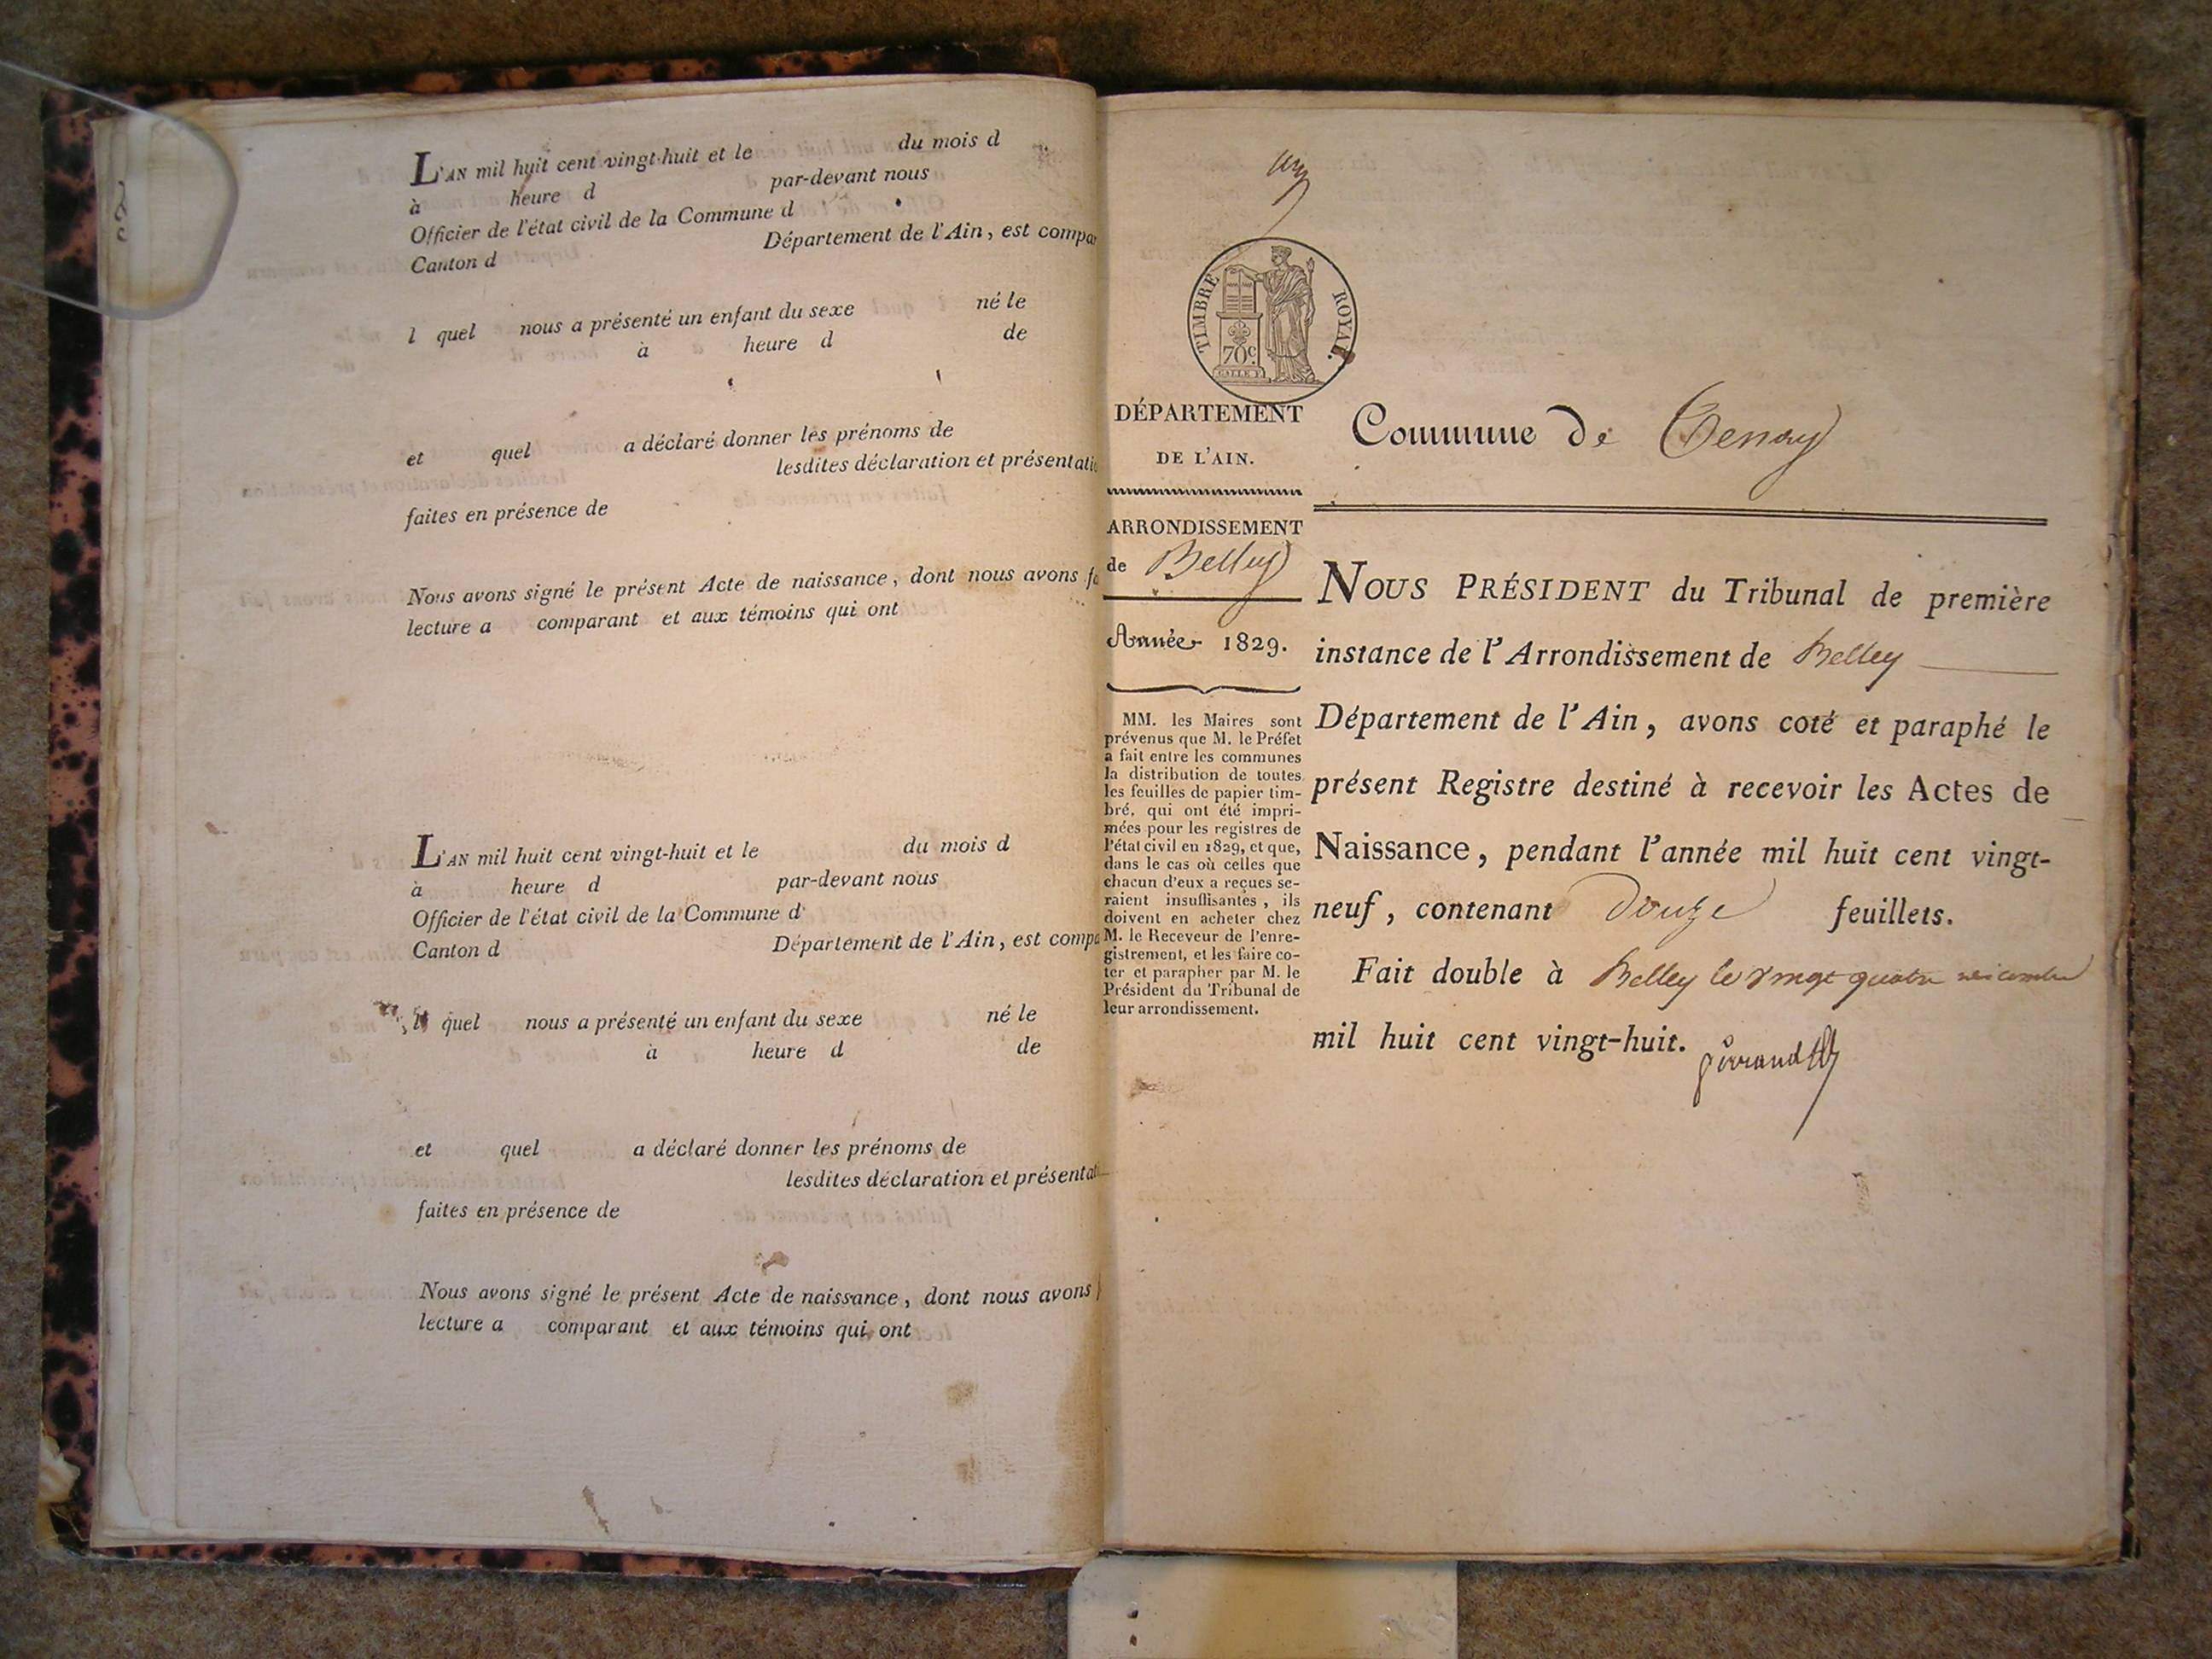 L'AN mil huit cent vingt-huit et le du mois d
à heure d par-devant nous
Officier de l'état civil de la Commune d
Canton d Département de l'Ain, est compar
l quel nous a présenté un enfant du sexe né le
à heure d de
et quel a déclaré donner les prénoms de
lesdites déclaration et présentatio
faites en présence de
Nous avons signé le présent Acte de naissance, dont nous avons fa
lecture a comparant et aux témoins qui ont
L'AN mil huit cent vingt-huit et le du mois d
à heure d par-devant nous
Officier de l'état civil de la Commune d
Canton d Département de l'Ain, est compa
l quel nous a présenté un enfant du sexe né le
à heure d de
et quel a déclaré donner les prénoms de
lesdites déclaration et présentati
faites en présence de
Nous avons signé le présent Acte de naissance, dont nous avons
lecture a comparant et aux témoins qui ont
TIMBRE ROYAL.
70c.
DÉPARTEMENT
DE L'AIN.
ARRONDISSEMENT
de Belley
Année 1829.
MM. les Maires sont
prévenus que M. le Préfet
a fait entre les communes
la distribution de toutes
les feuilles de papier tim-
bré, qui ont été impri-
mées pour les registres de
l'état civil en 1829, et que,
dans le cas où celles que
chacun d'eux a reçues se-
raient insuffisantes, ils
doivent en acheter chez
M. le Receveur de l'enre-
gistrement, et les faire co-
ter et parapher par M. le
Président du Tribunal de
leur arrondissement.
Commune de Tenay
NOUS PRÉSIDENT du Tribunal de première
instance de l'Arrondissement de Belley
Département de l'Ain, avons coté et paraphé le
présent Registre destiné à recevoir les Actes de
Naissance, pendant l'année mil huit cent vingt-
neuf, contenant douze feuillets.
Fait double à Belley le vingt quatre
mil huit cent vingt-huit.